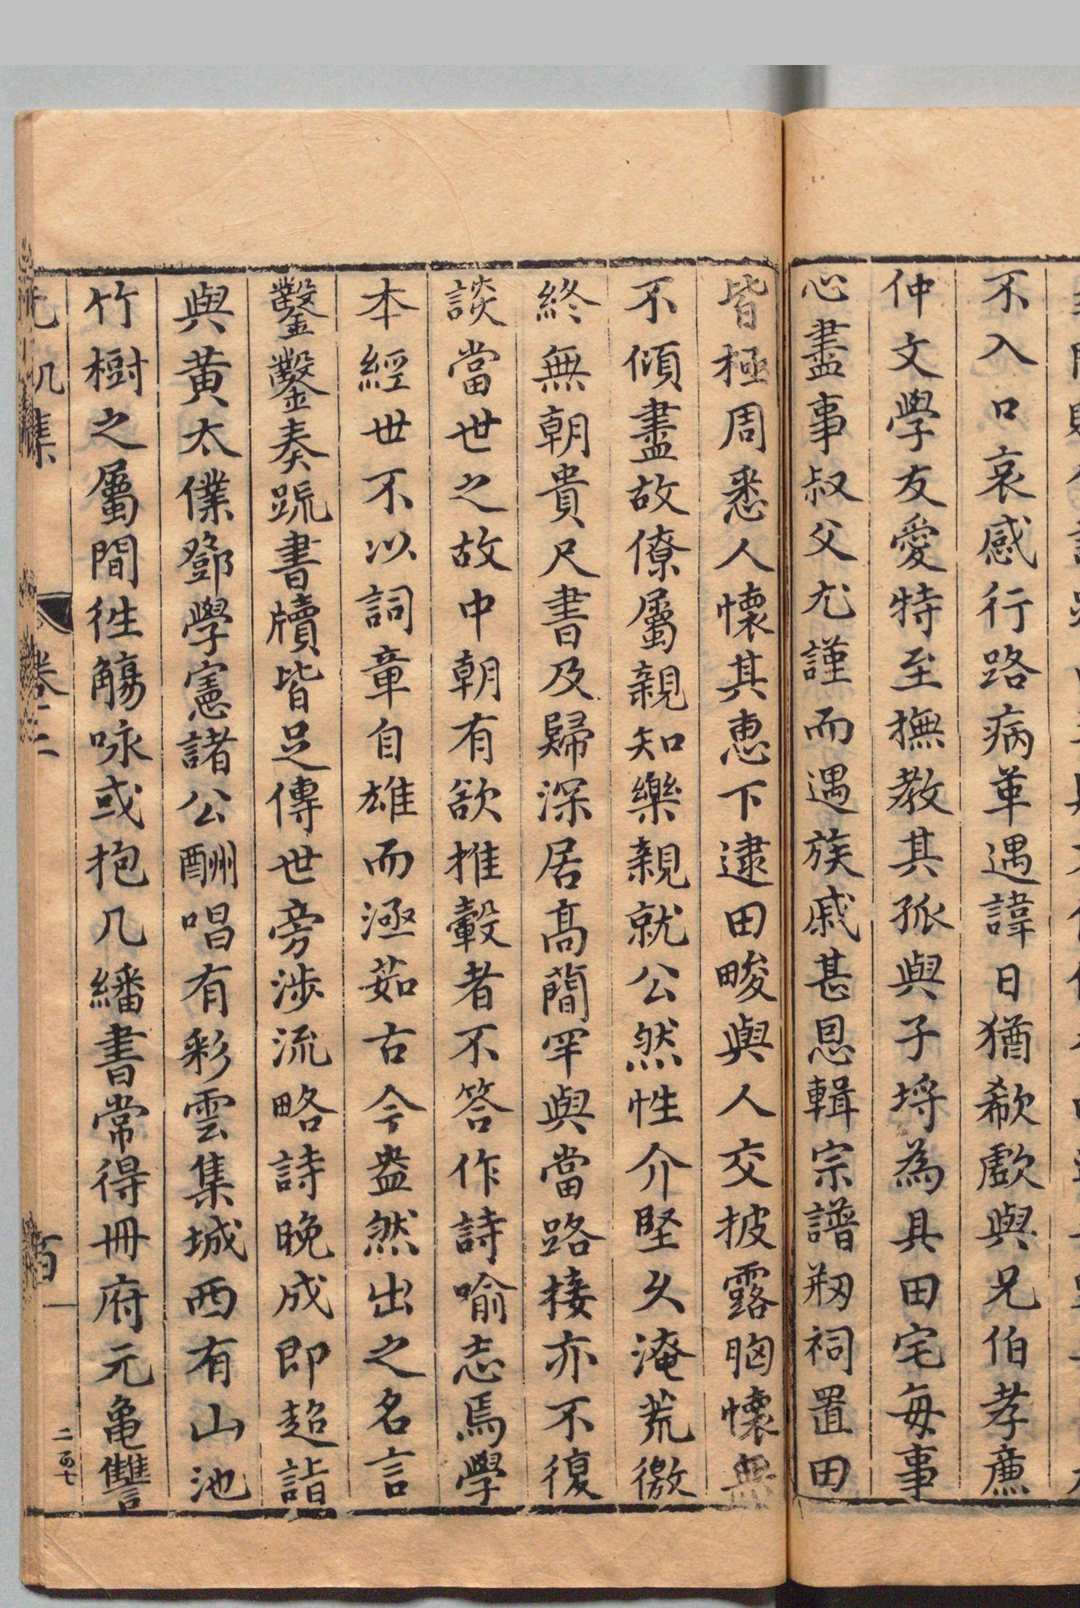 不入口哀感行路病革遇諱日猶欷歔與兄伯孝廉
仲文學友愛特至撫教其孤與子埒為具田宅毎事
心盡事叔父尤謹而遇族戚甚恩輯宗譜剏祠置田
皆極周悉人懷其惠下逮田畯與人交披露胸懷無
不傾盡故僚屬親知樂親就公然性介堅久淹荒徼
終無朝貴尺書及歸深居高簡罕與當路接亦不復
談當世之故中朝有欲推轂者不答作詩喻志焉學
本經世不以詞章自雄而涵茹古今盎然出之名言
鑿鑿奏䟽書牘皆足傳世旁涉流略詩晚成即超詣
與黄太僕鄧學憲諸公酬唱有彩雲集城西有山池
竹樹之屬間徃觴咏或抱几繙書常得冊府元亀讐
集
卷十二